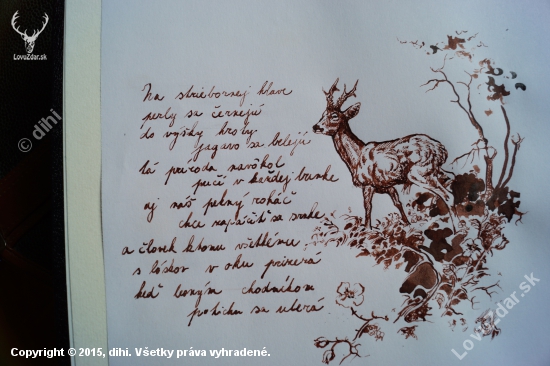 LovuZdar.sk
© dihi
Na striebornej hlave
perly sa černejú
do výšky hroty
jagavo sa belejú
tá príroda navôkol
pučí v každej bunke
aj náš pekný roháč
chce zapáčiť sa srnke
a človek k tomu všetkému
s láskou v oku prizerá
keď lesným chodníkom
potichu sa uberá
LovuZdar.sk
Copyright © 2015, dihi. Všetky práva vyhradené.